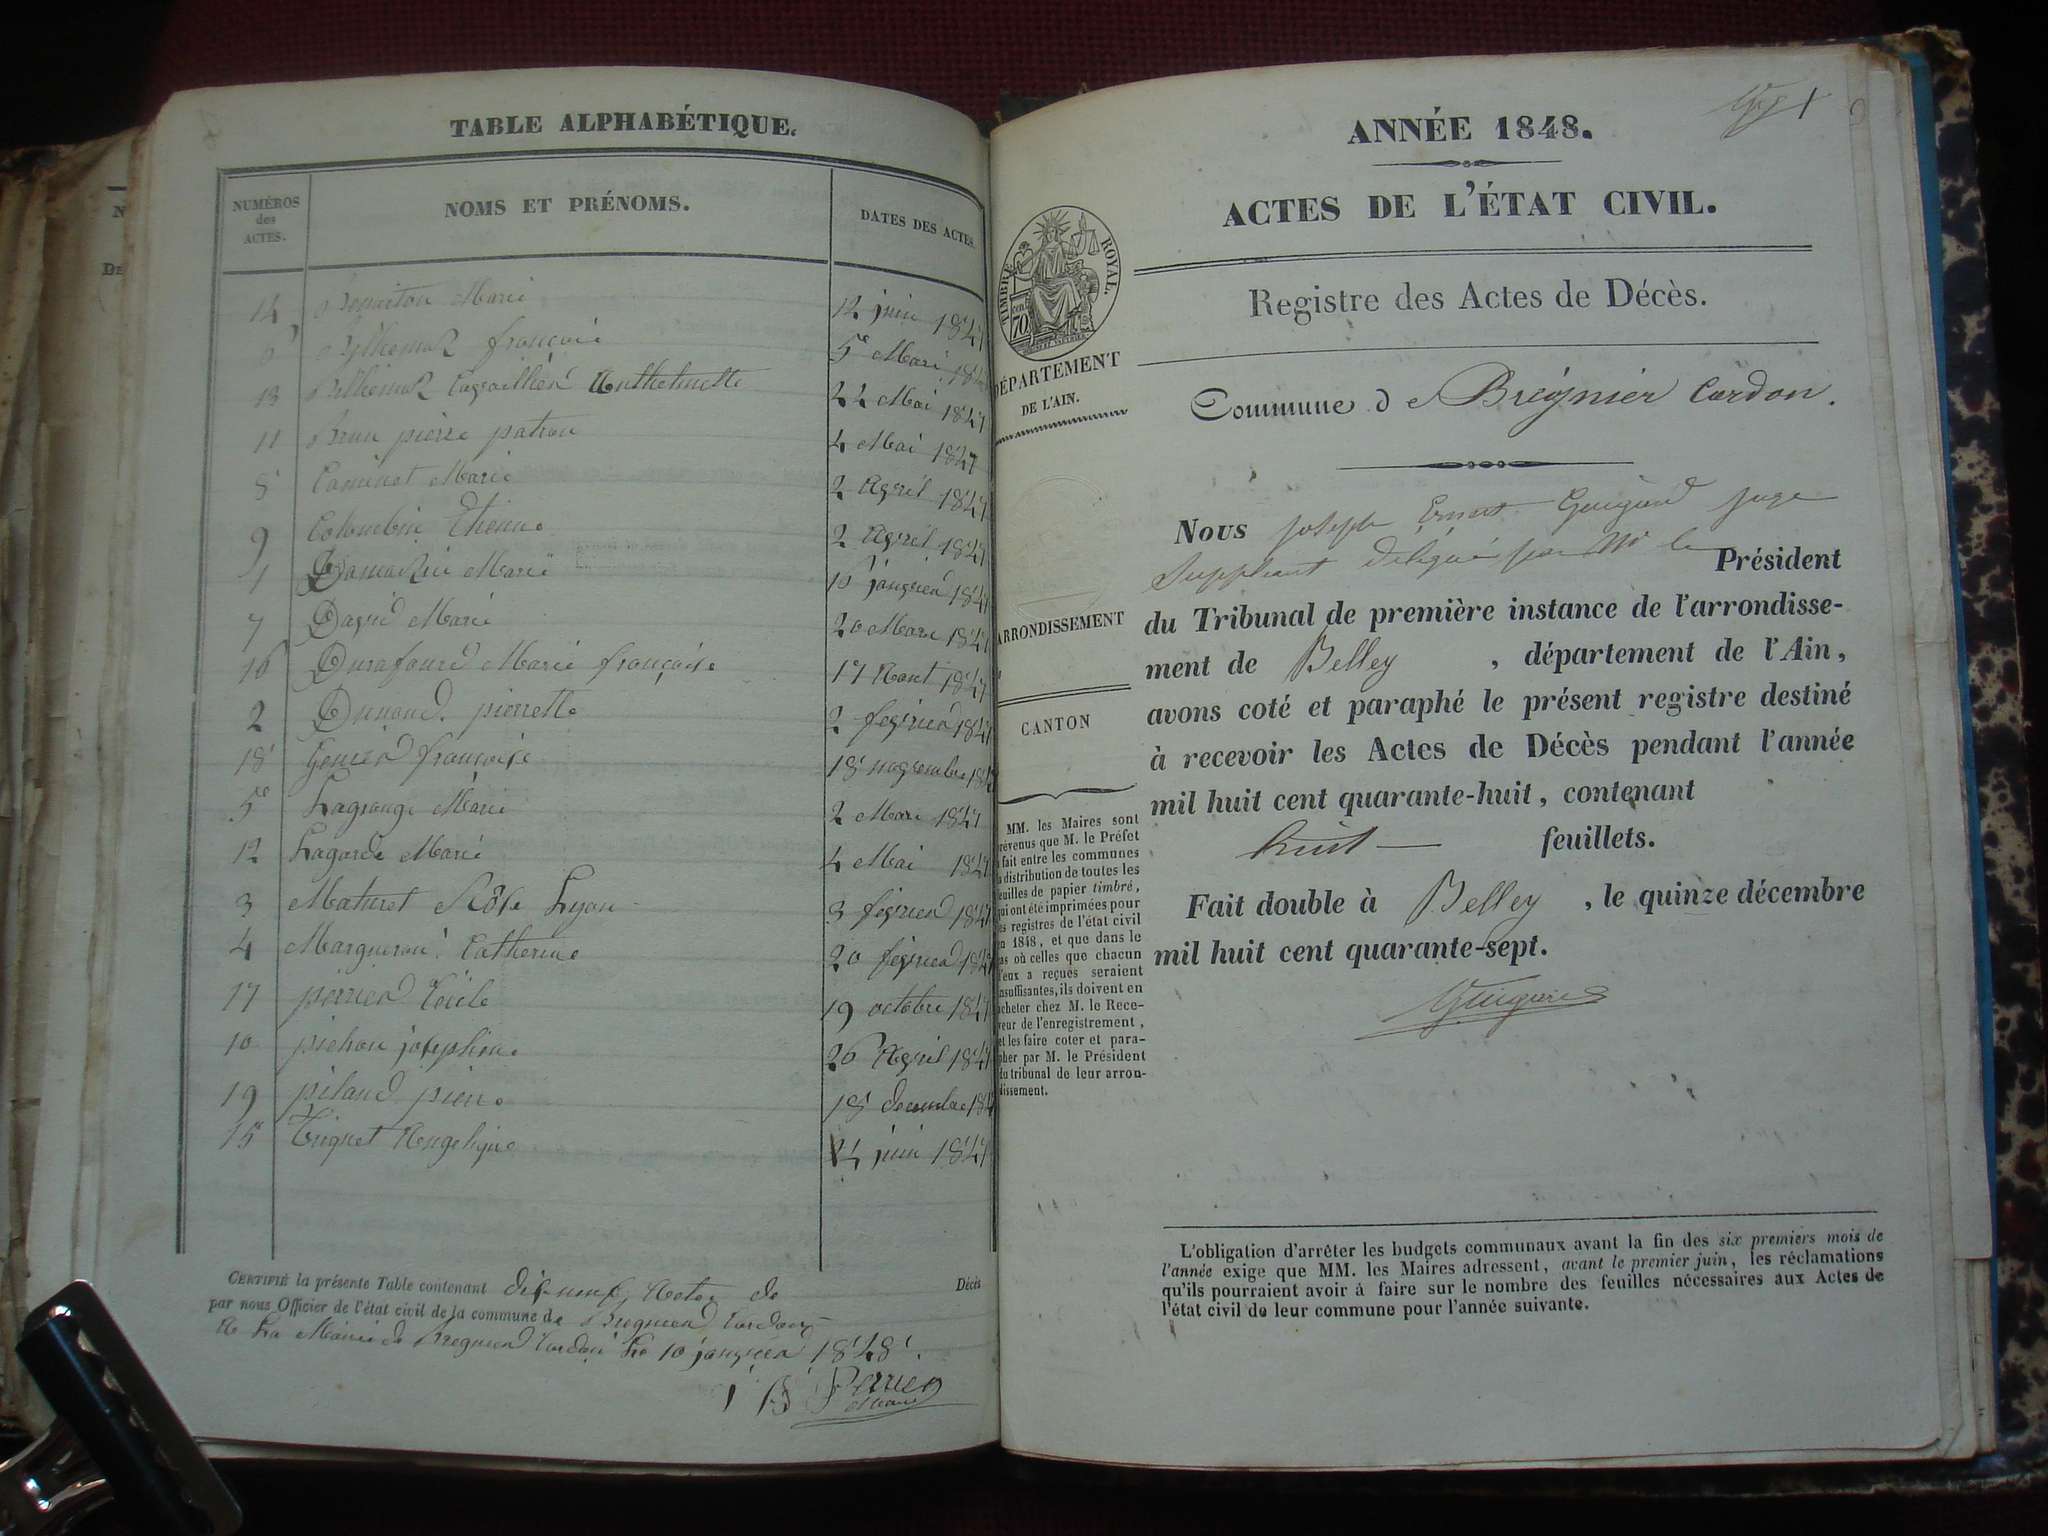 TABLE ALPHABÉTIQUE.
NUMÉROS
des
ACTES.
NOMS ET PRÉNOMS.
DATES DES ACTES.
14 Marie 12 juin 1847
6 françois 5 Mars
13 Anthelmette 22 Mai 1847
11 Brun pierre patron 4 Mai 1847
8 Marie 2 Avril 1847
9 Colombin Etienne 2 Avril 1847
1 Marie 16 janvier 1847
7 David Marie 20 Mars 1847
16 Durafourd Marie françoise 17 Aout 1847
2 Dunand pierrette 2 février 1847
18 françoise 18 novembre 1847
5 Lagrange Marie 2 Mars 1847
12 Lagarde Marie 4 Mai 1847
3 Maturet Lyon 3 février 1847
4 Catherine 20 février 1847
17 perrier 19 octobre 1847
10 pichon josephine 26 Avril 1847
19 pierre 18 decembre
15 Triquet Angelique 24 juin 1847
CERTIFIÉ la présente Table contenant dix neuf Actes de Décès
par nous Officier de l'état civil de la commune de Bregnier Cordon
A La Mairie de Bregnier Cordon Le 10 janvier 1848.
Perrier
Maire
1
ANNÉE 1848.
ACTES DE L'ÉTAT CIVIL.
TIMBRE ROYAL.
70
Registre des Actes de Décès.
DÉPARTEMENT
DE L'AIN.
Commune de Brégnier Cordon.
Nous joseph Ernest Guigard juge
Suppléant délégué par Mr le Président
du Tribunal de première instance de l'arrondisse-
ment de Belley, département de l'Ain,
avons coté et paraphé le présent registre destiné
à recevoir les Actes de Décès pendant l'année
mil huit cent quarante-huit, contenant
huit feuillets.
Fait double à Belley, le quinze décembre
mil huit cent quarante-sept.
ARRONDISSEMENT
CANTON
MM. les Maires sont
prévenus que M. le Préfet
a fait entre les communes
la distribution de toutes les
feuilles de papier timbré,
qui ont été imprimées pour
les registres de l'état civil
en 1848, et que dans le
cas où celles que chacun
d'eux a reçues seraient
insuffisantes, ils doivent en
acheter chez M. le Rece-
veur de l'enregistrement,
et les faire coter et para-
pher par M. le Président
du tribunal de leur arron-
dissement.
L'obligation d'arrêter les budgets communaux avant la fin des six premiers mois de
l'année exige que MM. les Maires adressent, avant le premier juin, les réclamations
qu'ils pourraient avoir à faire sur le nombre des feuilles nécessaires aux Actes de
l'état civil de leur commune pour l'année suivante.